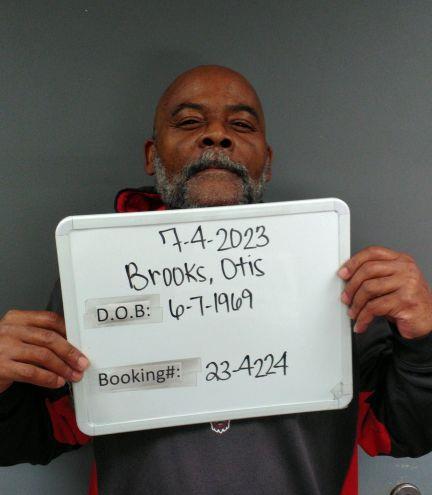 7-4-2023
Brooks, Otis
D.O.B: 6-7-1969
Booking#: 23-4224